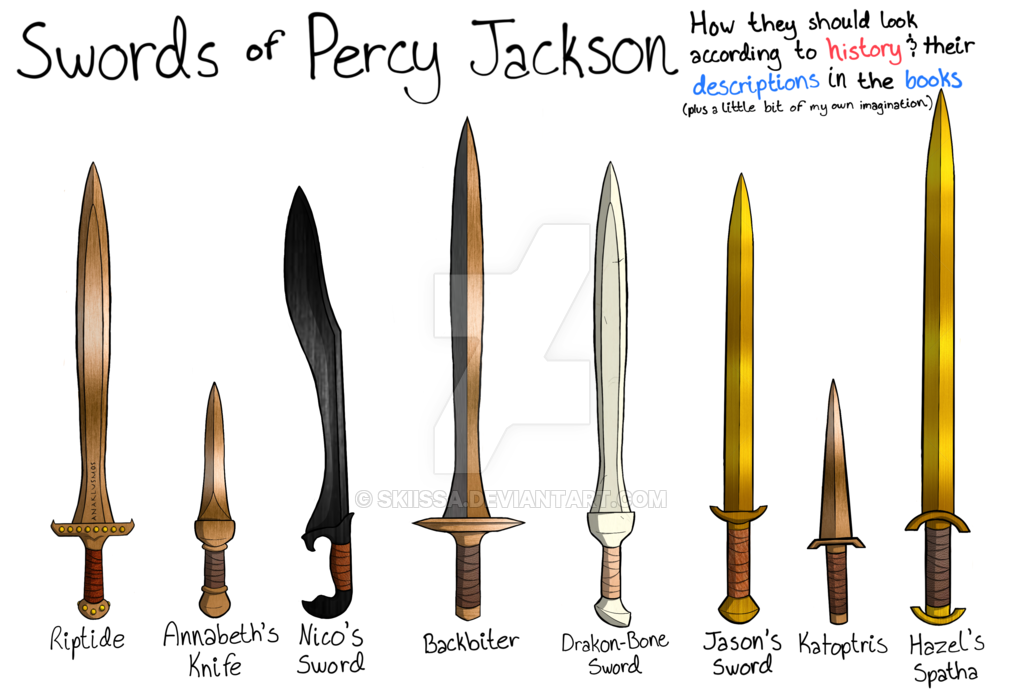 Swords of Percy Jackson
How they should look
according to history & their
descriptions in the books
(plus a little bit of my own imagination)
ANAKLUSMOS
© SKIISSA.DEVIANTART.COM
Riptide
Annabeth's
Knife
Nico's
Sword
Backbiter
Drakon-Bone
Sword
Jason's
Sword
Katoptris
Hazel's
Spatha